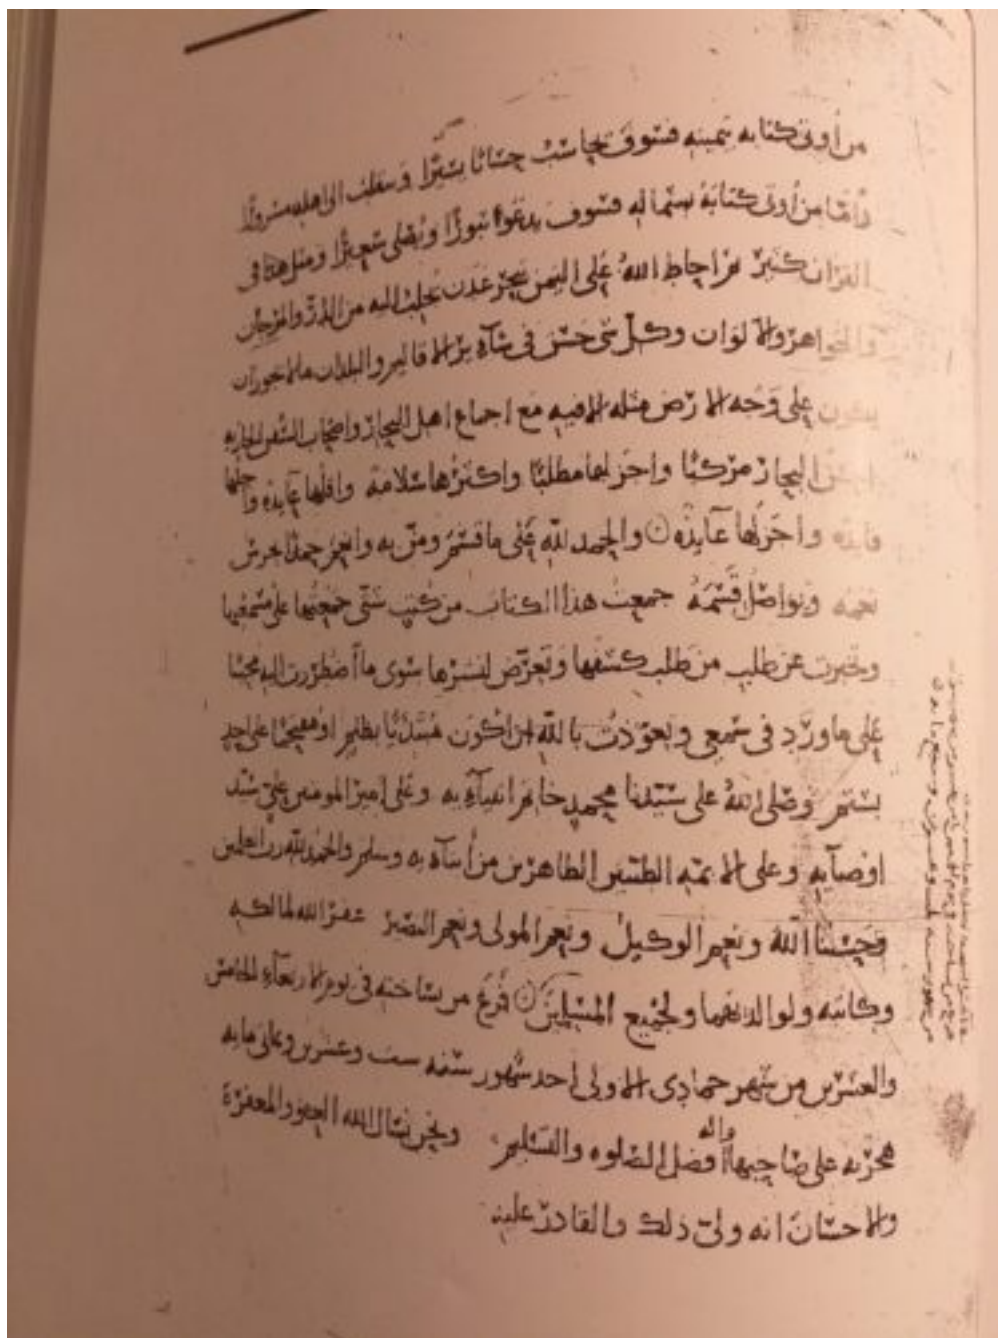 من أوتى كتابه بيمينه فسوف يحاسب حسابا يسيرا وينقلب الى اهله مسرورا
وأما من أوتى كتابه بشماله فسوف يدعوا ثبورا ويصلى سعيرا ومثل هذا فى
القران كثير ثم احاط الله على اليمن ببحر عدن يجلب اليه من الدر والمرجان
والجواهر والالوان وكل شى حسن فى سآئر الاقاليم والبلدان مالا
يكون على وجه الارض مثله الا فيه مع اجماع اهل البحار واصحاب السفن
البحار مركبا واجزلها مطلبا واكثرها سلامة واقلها
فايدة واجزلها عآيدة والحمد لله على ما قسم ومن به وانعم حمدا
نعمه وتواصل قسمه جمعت هذا الكتاب من كتب شتى جمعتها على
عن طلب من طلب كشفها وتعرض لنشرها سوى ما اضطررت اليه
على ما ورد فى سمعى وتعوذت بالله ان اكون مبتديا بظلم او على احد
بشتم وصلى الله على سيدنا محمد خاتم انبيآئه وعلى امير المومنين على سيد
اوصيآيه وعلى الايمه الطيبين الطاهرين من أبنآئه وسلم والحمد لله رب العلمين
وحسبنا الله ونعم الوكيل ونعم المولى ونعم النصير غفر الله لمالكه
وكاتبه ولوالديهما ولجميع المسلمين فرغ من نساخته فى يوم الاربعآء الخامس
والعشرين من شهر جمادى الاولى احد شهور سنه ست وعشرين وثمانى مايه
هجريه على صاحبها واله افضل الصلوه والتسليم ونحن نسال الله العفو والمغفرة
والاحسان انه ولى ذلك والقادر عليه